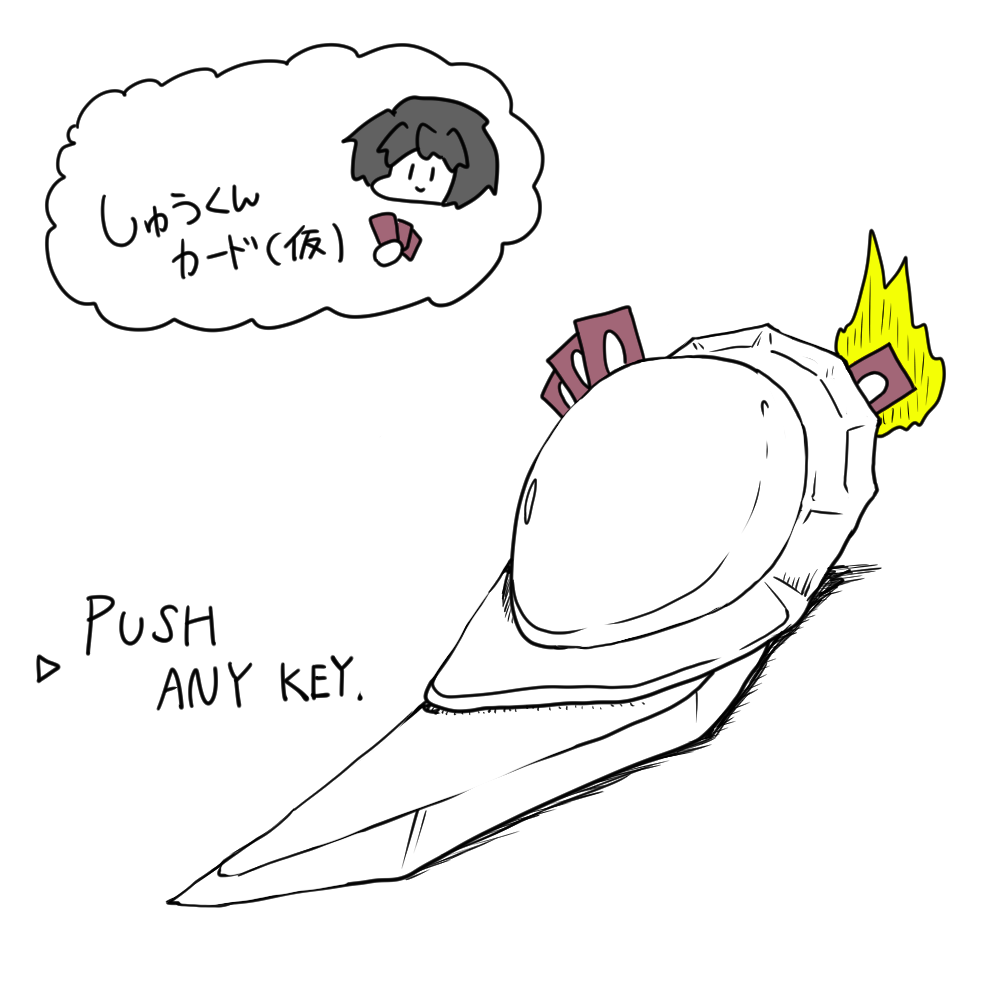 しゅうくん
カード(仮)
PUSH
ANY KEY.